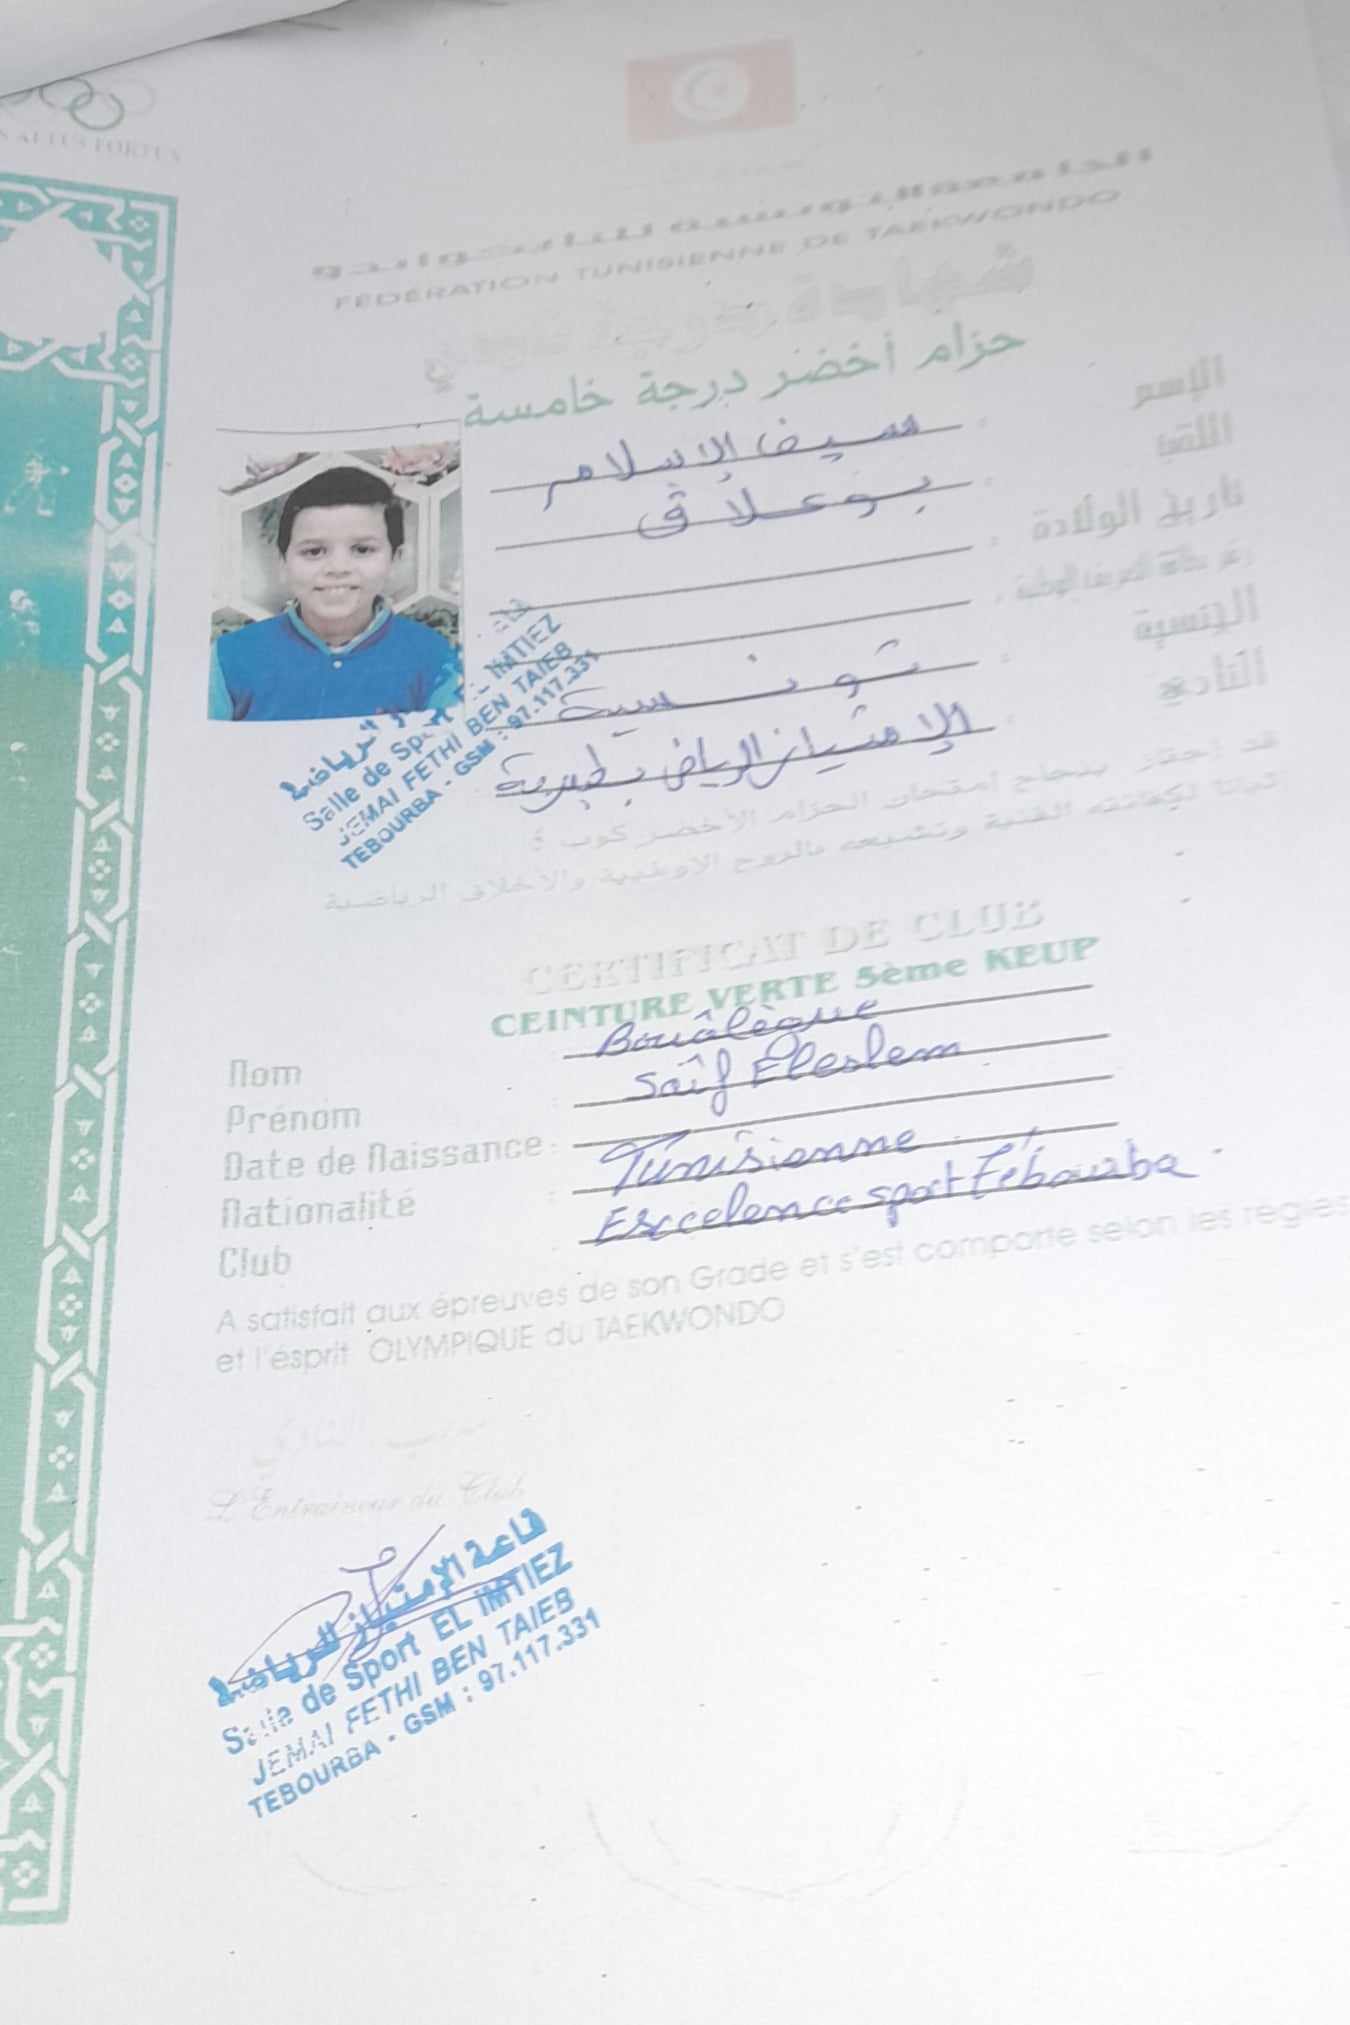 ALTUS FORTUS
الجامعة التونسية للتايكواندو
FÉDÉRATION TUNISIENNE DE TAEKWONDO
حزام أخضر درجة خامسة
الإسم : سيف الإسلام
اللقب : بوعلاق
تاريخ الولادة :
رقم بطاقة التعريف الوطنية :
الجنسية : تونسية
النادي : الإمتياز الرياضي بطبربة
قد إجتاز بنجاح إمتحان الحزام الأخضر كوب 5
الرياضية
Salle de Sport EL IMTIEZ
JEMAI FETHI BEN TAIEB
TEBOURBA - GSM : 97.117.331
CERTIFICAT DE CLUB
CEINTURE VERTE 5ème KEUP
Nom Bouâlègue
Prénom : Saîf Eleslem
Date de Naissance :
Nationalité : Tunisienne
Club : Exccelence sport Tébourba.
A satisfait aux épreuves de son Grade et s'est comporté selon les règles
et l'ésprit OLYMPIQUE du TAEKWONDO
مدرب النادي
L'Entraineur du Club
قاعة الإمتياز الرياضية
Salle de Sport EL IMTIEZ
JEMAI FETHI BEN TAIEB
TEBOURBA - GSM : 97.117.331